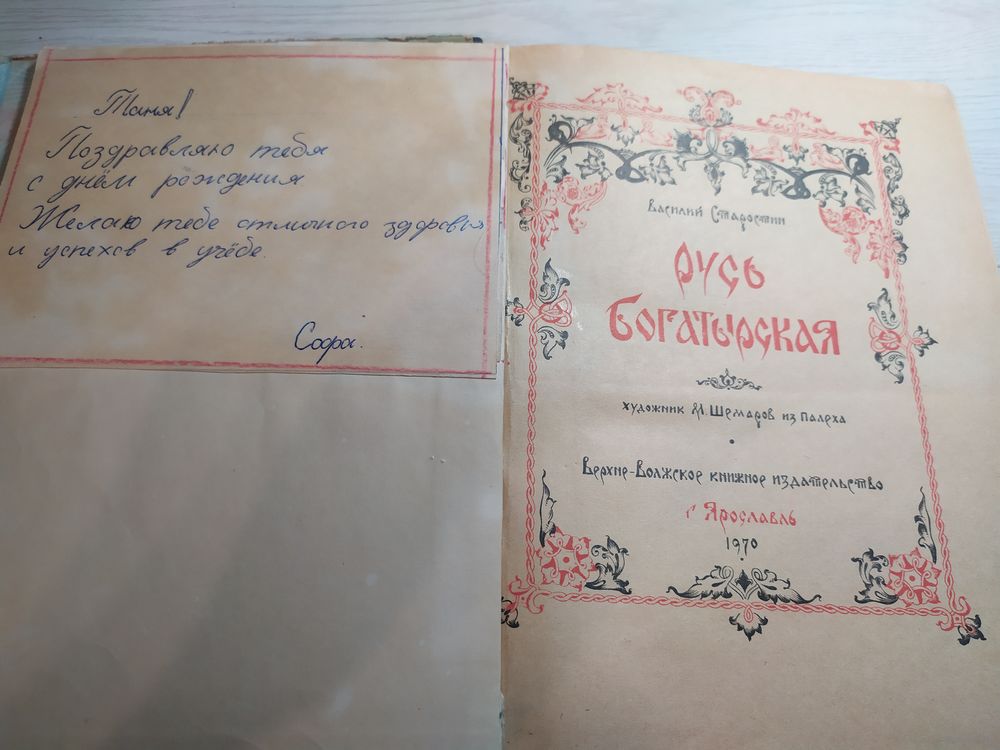 Таня!
Поздравляю тебя
с днём рождения
Желаю тебе отличного здоровья
и успехов в учёбе.
Софа.
Василий Старостин
Русь
Богатырская
художник М. Шемаров из Палеха
Верхне-Волжское книжное издательство
г Ярославль
1970